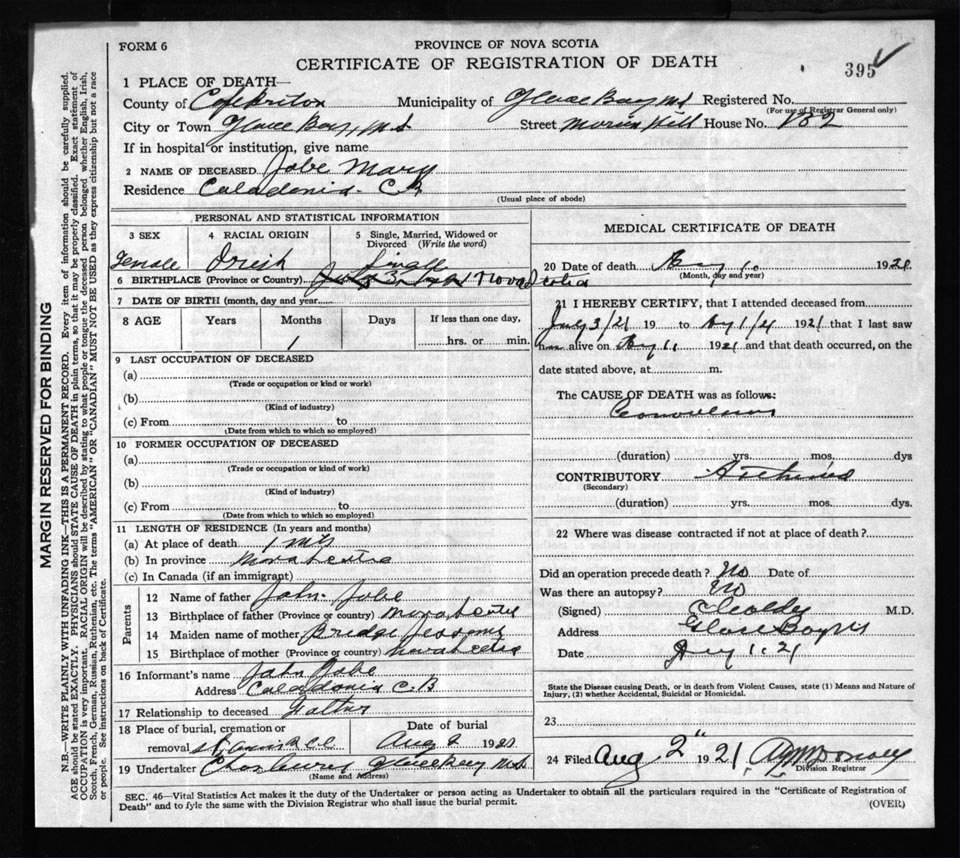 FORM 6
PROVINCE OF NOVA SCOTIA
CERTIFICATE OF REGISTRATION OF DEATH
395
1 PLACE OF DEATH—
County of Municipality of Glace Bay Registered No.
(For use of Registrar General only)
City or Town Glace Bay, N.S Street Morien Hill House No. 182
If in hospital or institution, give name
2 NAME OF DECEASED Jobe Mary
Residence Caledonia. C B
(Usual place of abode)
PERSONAL AND STATISTICAL INFORMATION
3 SEX 4 RACIAL ORIGIN 5 Single, Married, Widowed or Divorced (Write the word)
Female Irish Single
6 BIRTHPLACE (Province or Country) Nova Scotia
7 DATE OF BIRTH (month, day and year
8 AGE Years Months Days If less than one day,
1 hrs. or min.
9 LAST OCCUPATION OF DECEASED
(a)
(Trade or occupation or kind or work)
(b)
(Kind of industry)
(c) From to
(Date from which to which so employed)
10 FORMER OCCUPATION OF DECEASED
(a)
(Trade or occupation or kind of work)
(b)
(Kind of industry)
(c) From to
(Date from which to which so employed)
11 LENGTH OF RESIDENCE (In years and months)
(a) At place of death 1
(b) In province Nova Scotia
(c) In Canada (if an immigrant)
Parents
12 Name of father John Jobe
13 Birthplace of father (Province or Country) Nova Scotia
14 Maiden name of mother
15 Birthplace of mother (Province or country) Nova Scotia
16 Informant's name John Jobe
Address Caledonia C.B
17 Relationship to deceased Father
18 Place of burial, cremation or removal Date of burial
Aug 2 192
19 Undertaker Chas Glace Bay N.S
(Name and Address)
MEDICAL CERTIFICATE OF DEATH
20 Date of death 192
(Month, day and year)
21 I HEREBY CERTIFY, that I attended deceased from
July 3/21 19 to 1921 that I last saw
alive on 1921 and that death occurred, on the
date stated above, at m.
The CAUSE OF DEATH was as follows:
(duration) yrs. mos. dys
CONTRIBUTORY
(Secondary)
(duration) yrs. mos. dys.
22 Where was disease contracted if not at place of death?
Did an operation precede death? No Date of
Was there an autopsy? No
(Signed) M.D.
Address Glace Bay
Date
State the Disease causing Death, or in death from Violent Causes, state (1) Means and Nature of
Injury, (2) whether Accidental, Suicidal or Homicidal.
23
24 Filed Aug 2" 1921
Division Registrar
SEC. 46—Vital Statistics Act makes it the duty of the Undertaker or person acting as Undertaker to obtain all the particulars required in the "Certificate of Registration of
Death" and to fyle the same with the Division Registrar who shall issue the burial permit.
(OVER)
MARGIN RESERVED FOR BINDING
N.B.—WRITE PLAINLY WITH UNFADING INK—THIS IS A PERMANENT RECORD. Every item of information should be carefully supplied.
AGE should be stated EXACTLY. PHYSICIANS should STATE CAUSE OF DEATH in plain terms, so that it may be properly classified. Exact statement of
OCCUPATION is very important. RACIAL ORIGIN will be described by stating to what people or tongue the deceased person belonged whether English, Irish,
Scotch, French, German, Russian, Ruthenian, etc. The terms "AMERICAN" OR "CANADIAN" MUST NOT BE USED as they express citizenship but not a race
or people. See instructions on back of Certificate.